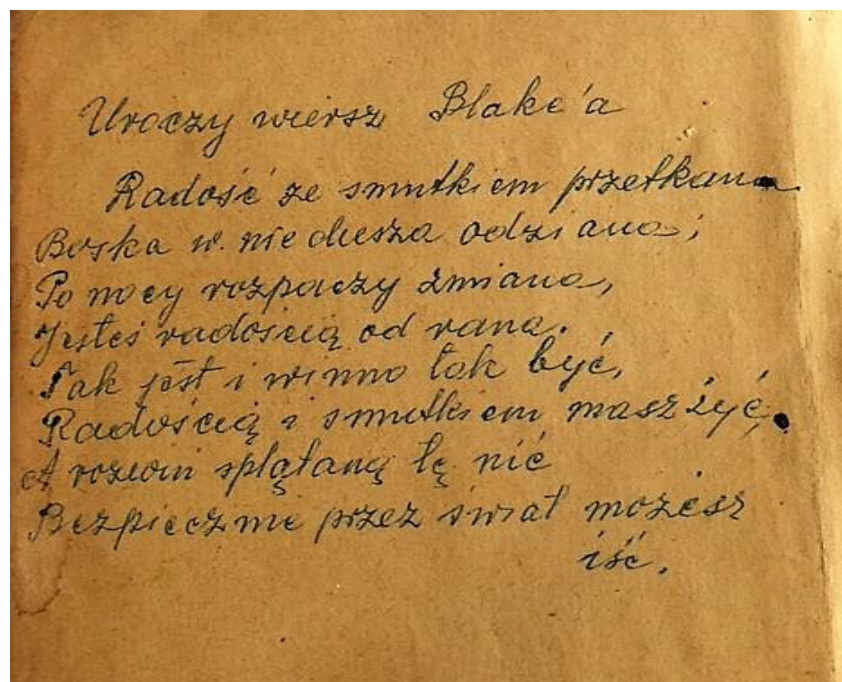 Uroczy wiersz Blake'a
Radość ze smutkiem przetkana
Boska w nie dusza odziana;
Po nocy rozpaczy zmiana,
Jesteś radością od rana.
Tak jest i winno tak być,
Radością i smutkiem masz żyć,
A rozwiń splątaną tę nić
Bezpiecznie przez świat możesz
iść.